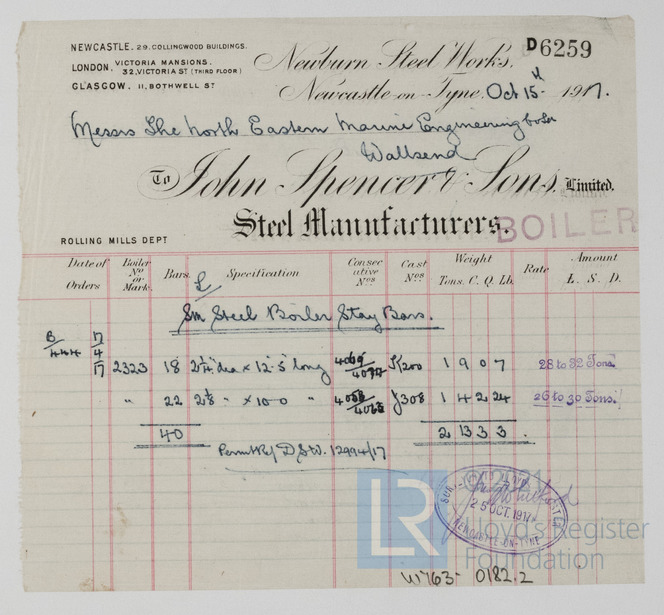 NEWCASTLE. 29. COLLINGWOOD BUILDINGS.
LONDON. VICTORIA MANSIONS. 32, VICTORIA ST (THIRD FLOOR)
GLASGOW. 11, BOTHWELL ST
Newburn Steel Works.
D6259
Newcastle-on-Tyne, Oct 15th 1917.
Messrs The North Eastern Marine Engineering Co Ld
Wallsend
To John Spencer & Sons, Limited.
Steel Manufacturers.
BOILER
ROLLING MILLS DEPT
Date of Orders Boiler No or Mark. Bars. Specification Consecutive Nos Cast Nos Weight Tons. C. Q. Lb. Rate Amount L. S. D.
Sm Steel Boiler Stay Bars.
6/444 17/4/17 2323 18 2¼" dia x 12'.5" long K200 1 9 0 7 28 to 32 Tons
" 22 2⅛ " x 10.0 " J308 1 4 2 24 26 to 30 Tons.
40 2 13 3 3.
Permit Ref D.S.W. 12994/17
SURVEYOR TO LLOYD'S REGISTER
25 OCT. 1917
NEWCASTLE-ON-TYNE
LR
Lloyd's Register
Foundation
W763- 0182.2